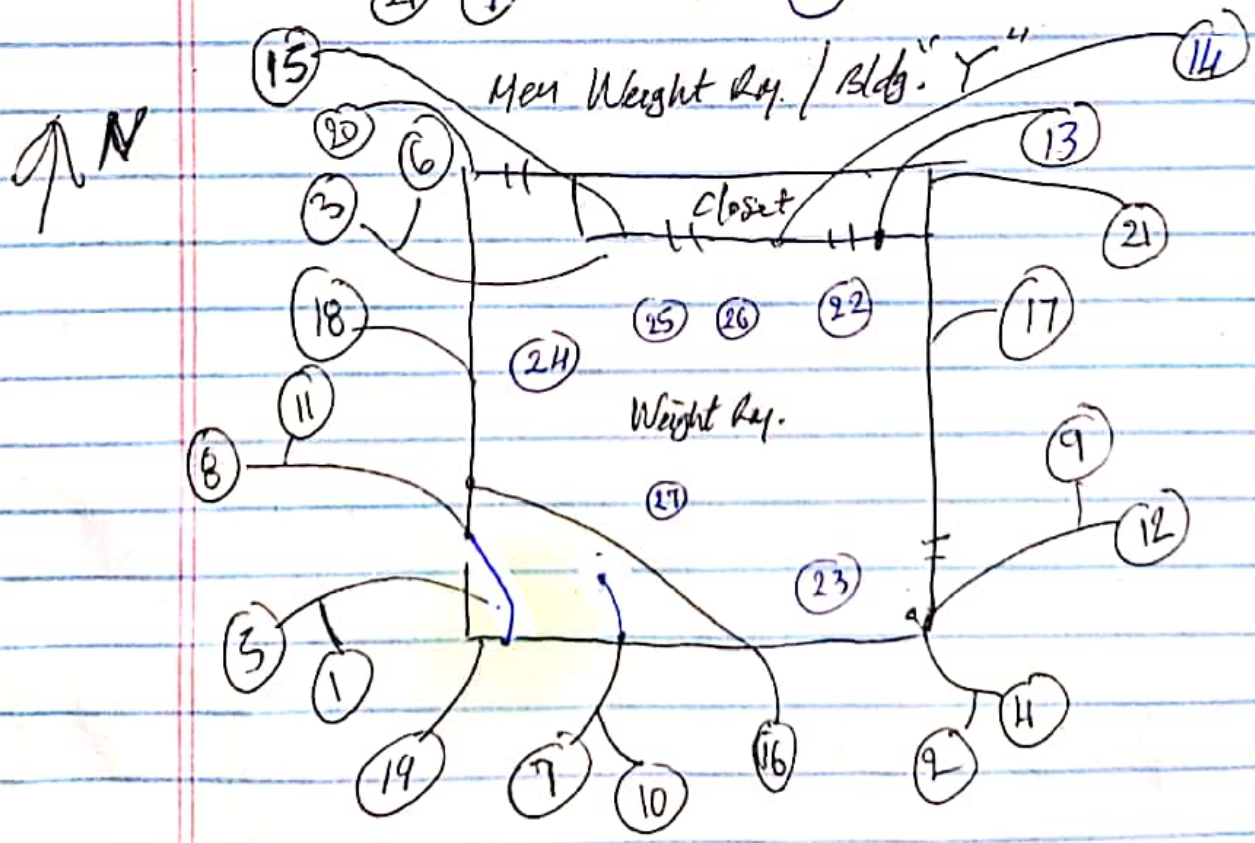 15
Men Weight Rm. / Bldg. "Y"
14
20
6
13
N
3
Closet
21
18
25 26 22
17
24
11
Weight Rm.
9
8
27
12
23
5
1
4
19
7
10
16
2